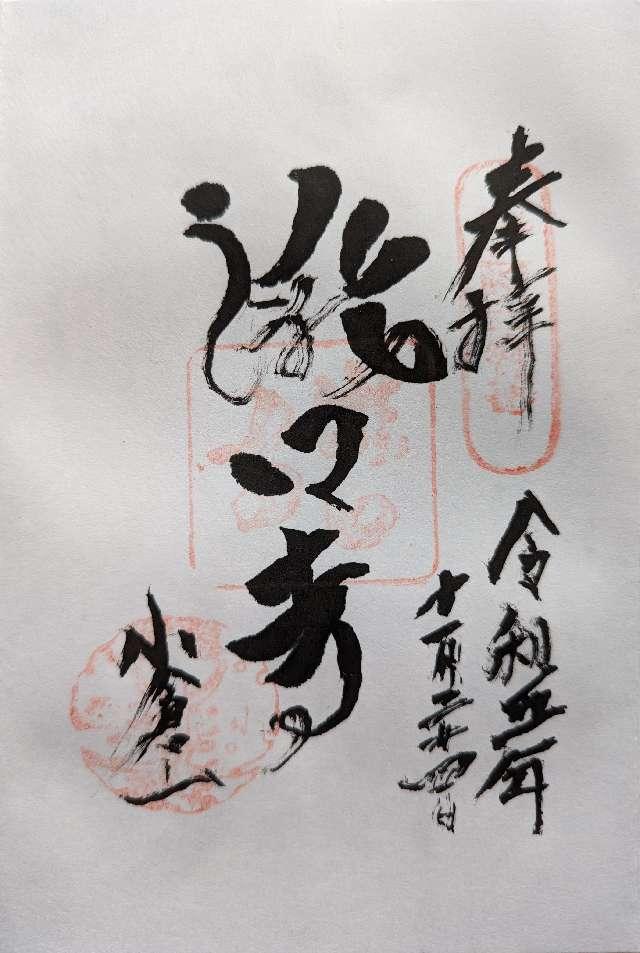 奉拝
令和五年
十一月二十四日
滝口寺
小倉山